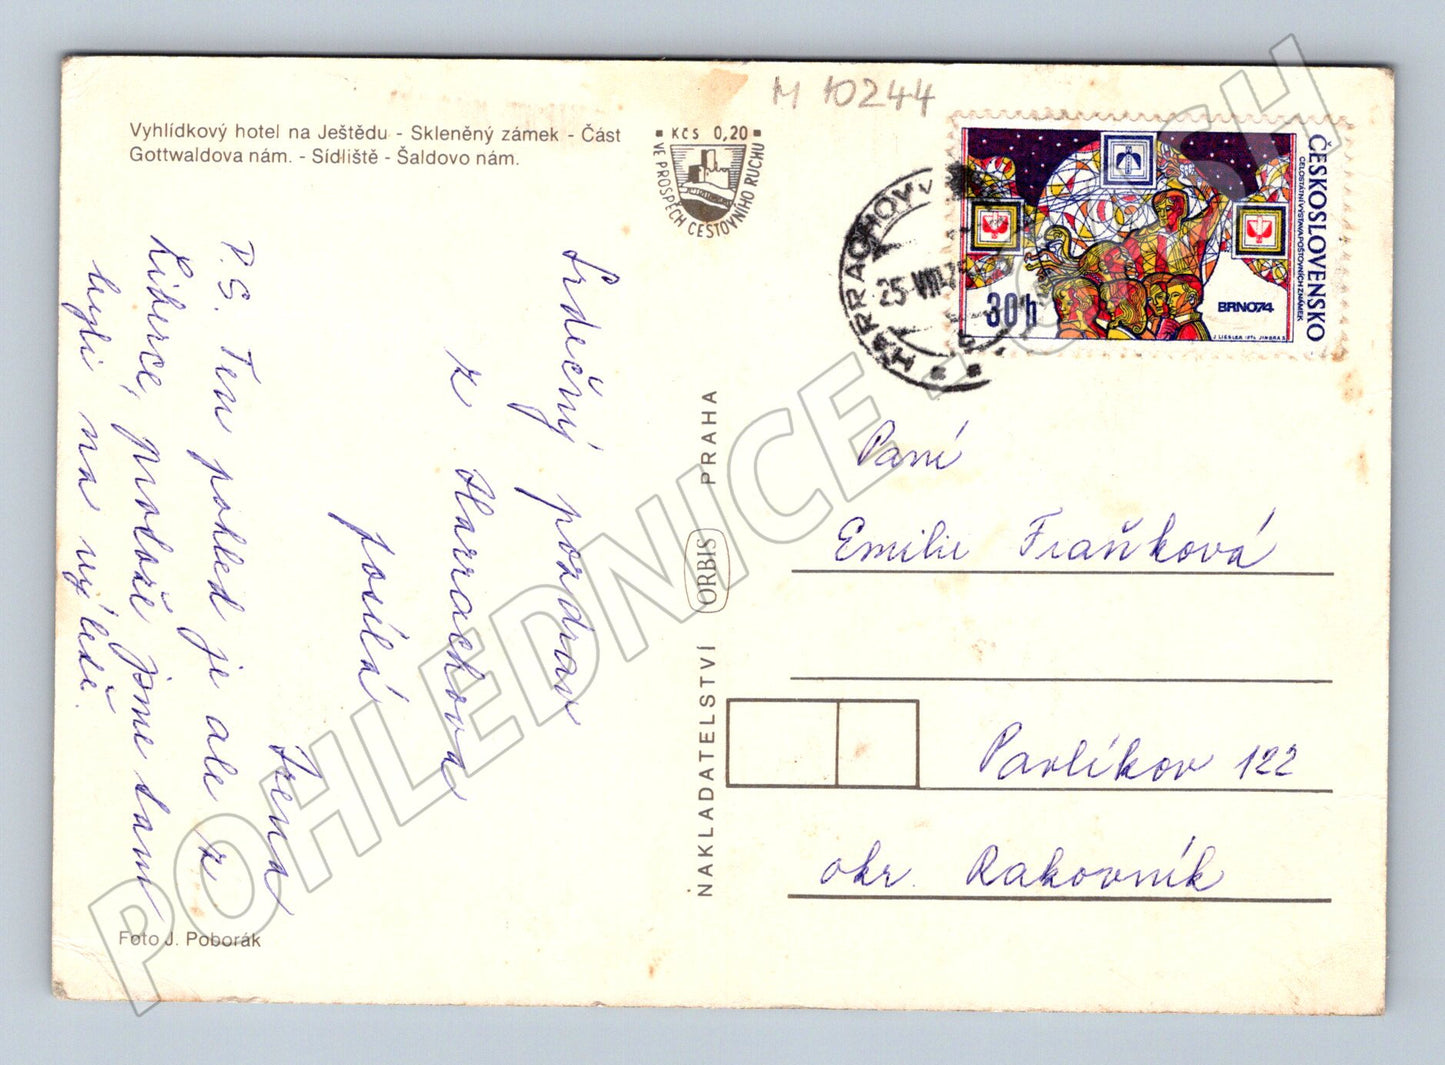 M 10244
Vyhlídkový hotel na Ještědu - Skleněný zámek - Část
Gottwaldova nám. - Sídliště - Šaldovo nám.
KČS 0,20
VE PROSPĚCH CESTOVNÍHO RUCHU
HARRACHOV
25.VIII.75
ČESKOSLOVENSKO
CELOSTÁTNÍ VÝSTAVA POŠTOVNÍCH ZNÁMEK
BRNO74
30h
J. LIESLER 1974 JINDRA S.
Srdečný pozdrav
z Harrachova
posílá
Irena
P.S. Ten pohled je ale z
Liberce, protože jsme tam
byli na výletě.
Foto J. Poborák
NAKLADATELSTVÍ ORBIS PRAHA
Paní
Emilie Fraňková
Pavlíkov 122
okr. Rakovník